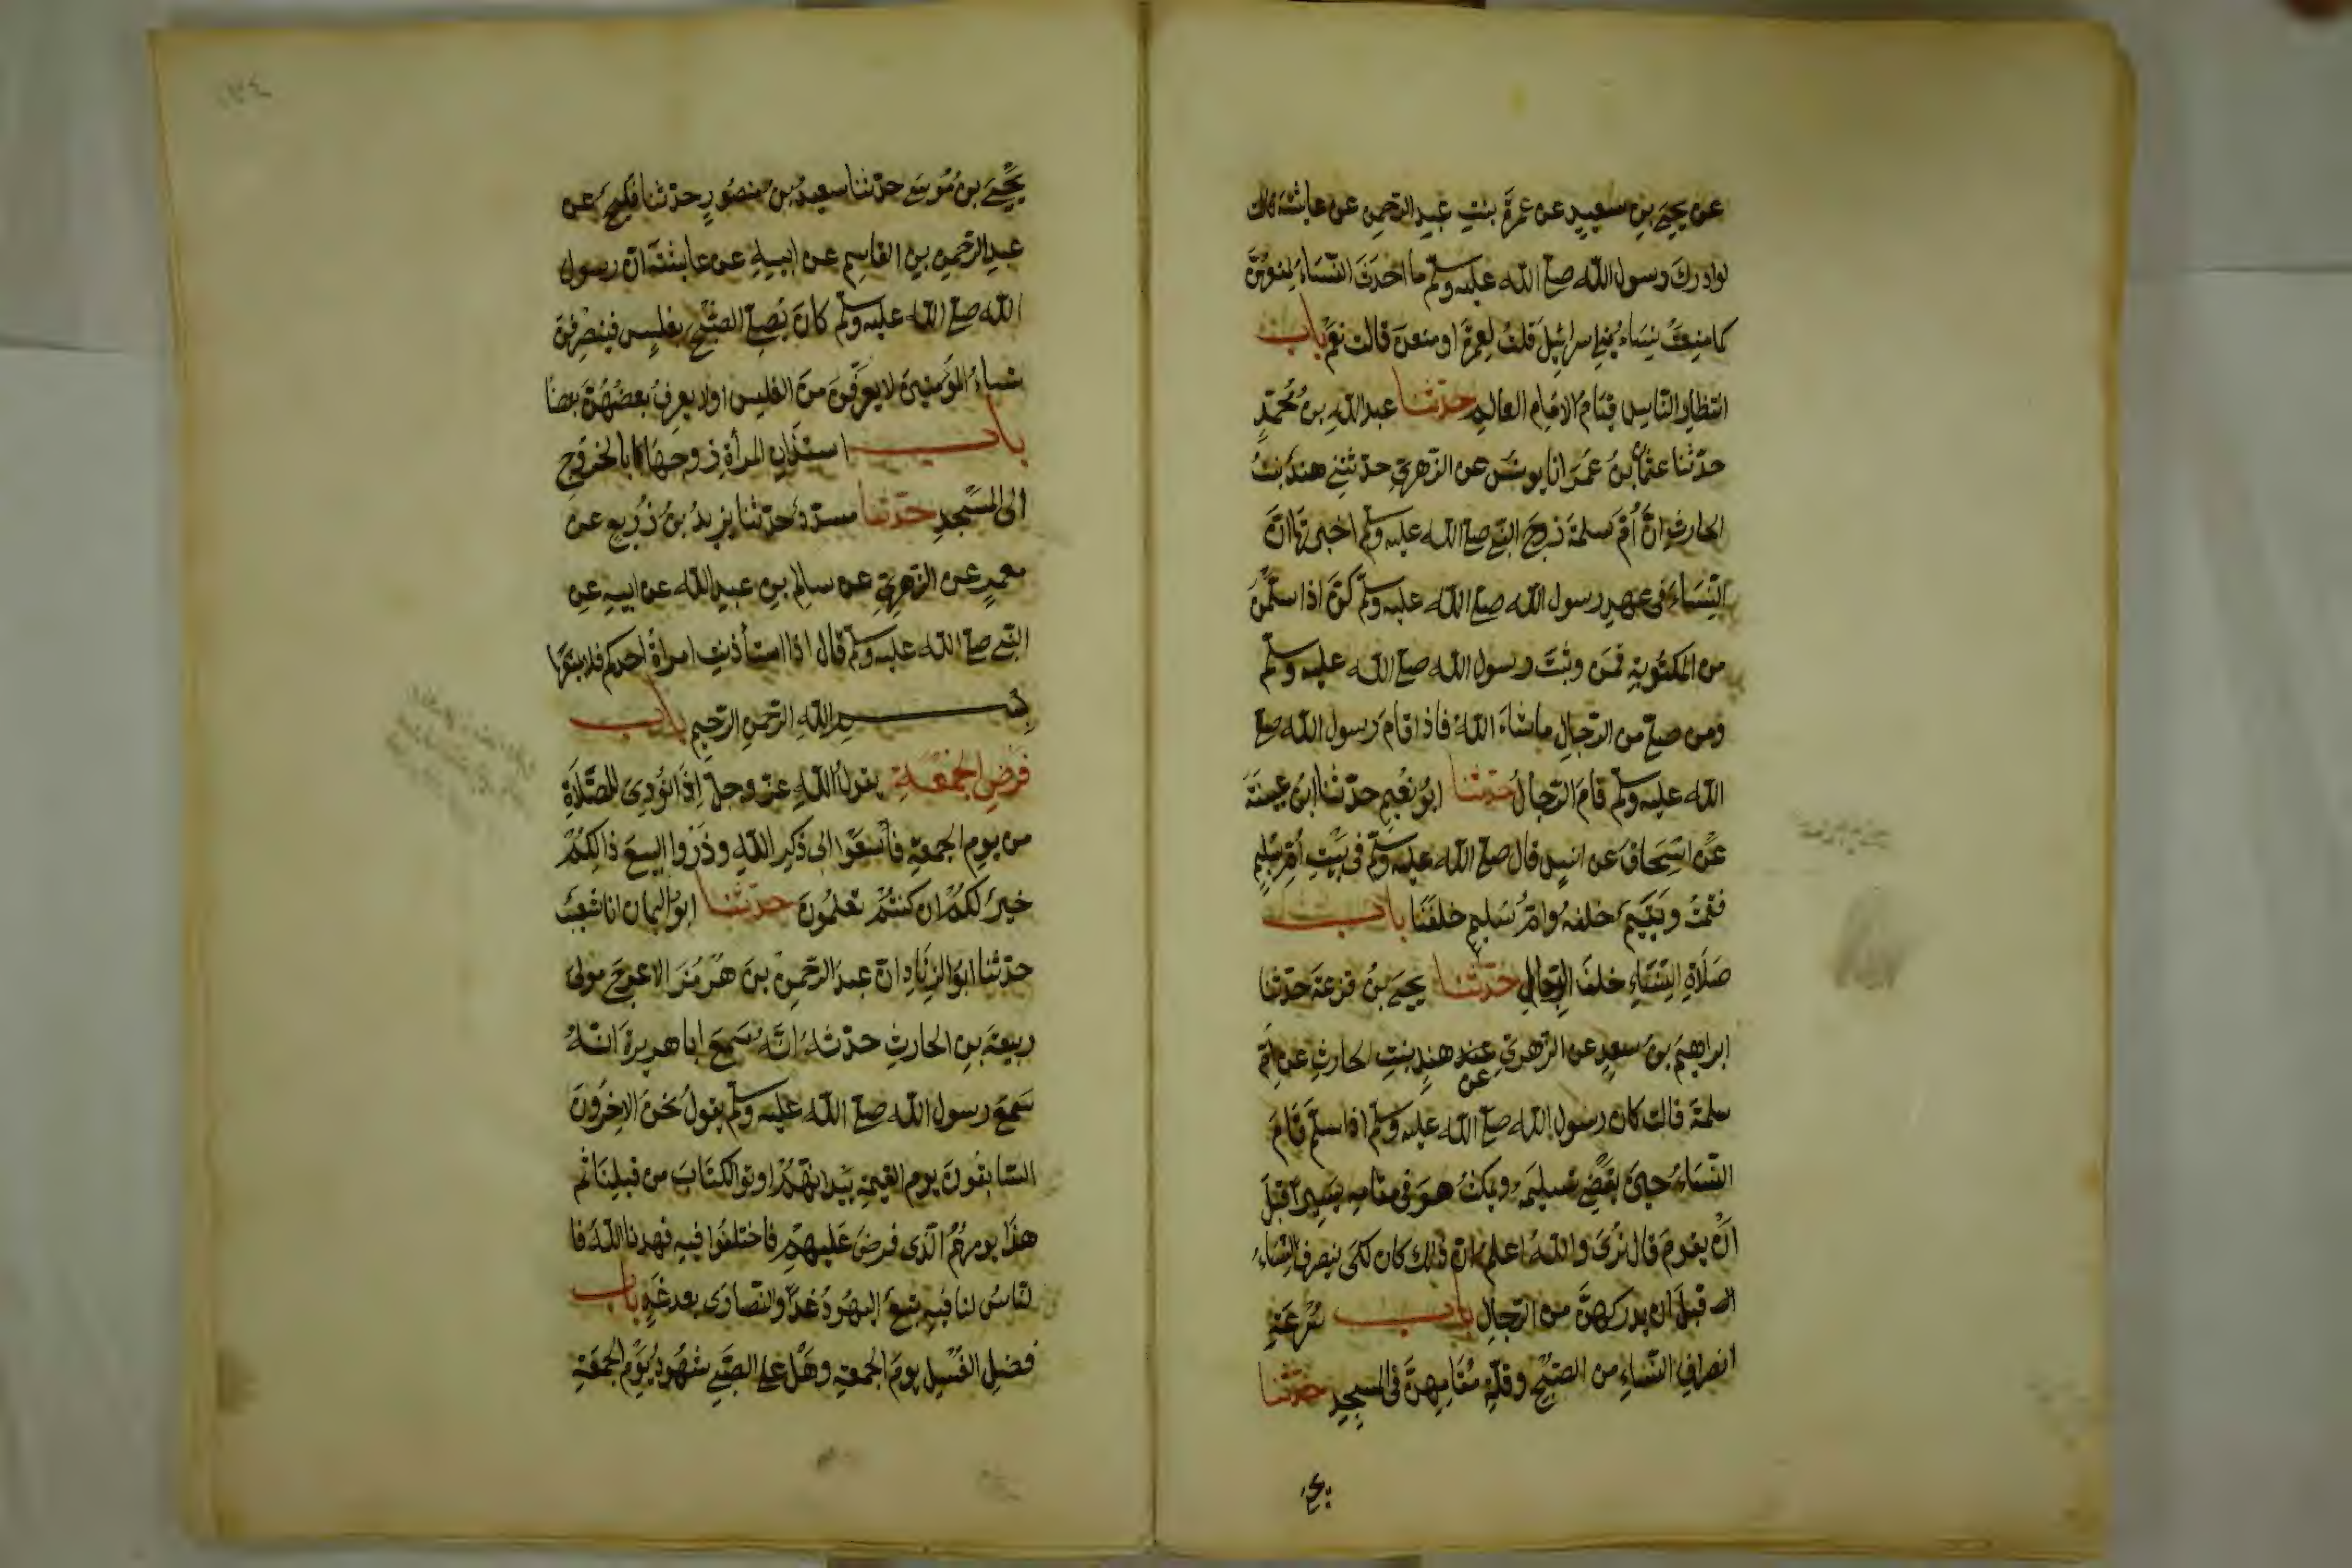 عن يحيى بن سعيد عن عمرة بنت عبد الرحمن عن عايشة قالت
لو ادرك رسول الله صلى الله عليه وسلم ما احدث النساء لمنعهن
كما منعت نساء بني اسرائيل قلت لعمرة او منعن قالت نعم باب
انتظار الناس قيام الامام العالم حدثنا عبد الله بن محمد
حدثنا عثمان بن عمر انا يونس عن الزهري حدثتني هند بنت
الحارث ان ام سلمة زوج النبي صلى الله عليه وسلم اخبرتها ان
النساء في عهد رسول الله صلى الله عليه وسلم كن اذا سلمن
من المكتوبة قمن وثبت رسول الله صلى الله عليه وسلم
ومن صلى من الرجال ما شاء الله فاذا قام رسول الله صلى
الله عليه وسلم قام الرجال حدثنا ابو نعيم حدثنا ابن عيينة
عن اسحاق عن انس قال صلى الله عليه وسلم في بيت ام سليم
فقمت ويتيم خلفه وام سليم خلفنا باب
صلاة النساء خلف الرجال حدثنا يحيى بن قزعة حدثنا
ابراهيم بن سعد عن الزهري عن هند بنت الحارث عن ام
سلمة قالت كان رسول الله صلى الله عليه وسلم اذا سلم قام
النساء حين يقضي تسليمه ويمكث هو في مقامه يسيرا قبل
ان يقوم قال نرى والله اعلم ان ذلك كان لكي ينصرف النساء
قبل ان يدركهن من الرجال باب سرعة
انصراف النساء من الصبح وقلة مقامهن في المسجد حدثنا
يحيى
يحيى بن موسى حدثنا سعيد بن منصور حدثنا فليح عن
عبد الرحمن بن القاسم عن ابيه عن عايشة ان رسول
الله صلى الله عليه وسلم كان يصلي الصبح بغلس فينصرفن
نساء المؤمنين لا يعرفن من الغلس او لا يعرف بعضهن بعضا
باب استئذان المرأة زوجها بالخروج
الى المسجد حدثنا مسدد حدثنا يزيد بن زريع عن
معمر عن الزهري عن سالم بن عبد الله عن ابيه عن
النبي صلى الله عليه وسلم قال اذا استأذنت امرأة احدكم فلا يمنعها
بسم الله الرحمن الرحيم باب
فرض الجمعة يقول الله عز وجل اذا نودي للصلاة
من يوم الجمعة فاسعوا الى ذكر الله وذروا البيع ذالكم
خير لكم ان كنتم تعلمون حدثنا ابو اليمان انا شعيب
حدثنا ابو الزناد ان عبد الرحمن بن هرمز الاعرج مولى
ربيعة بن الحارث حدثه انه سمع ابا هريرة انه
سمع رسول الله صلى الله عليه وسلم يقول نحن الاخرون
السابقون يوم القيمة بيد انهم اوتوا الكتاب من قبلنا ثم
هذا يومهم الذي فرض عليهم فاختلفوا فيه فهدنا الله فا
لناس لنا فيه تبع اليهود غدا والنصارى بعد غد باب
فضل الغسل يوم الجمعة وهل على الصبي شهود يوم الجمعة